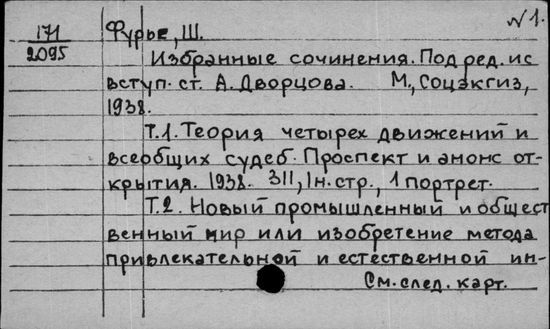 №1.
171
2095
Фурье, Ш.
Избранные сочинения. Под ред. и с
вступ. ст. А. Дворцова. М., Соцэкгиз,
1938.
Т.1. Теория четырех движений и
всеобщих судеб. Проспект и анонс от-
крытия. 1938. 311, 1 н. стр., 1 портрет.
Т.2. Новый промышленный и общест
венный мир или изобретение метода
привлекательной и естественной ин-
См. след. карт.